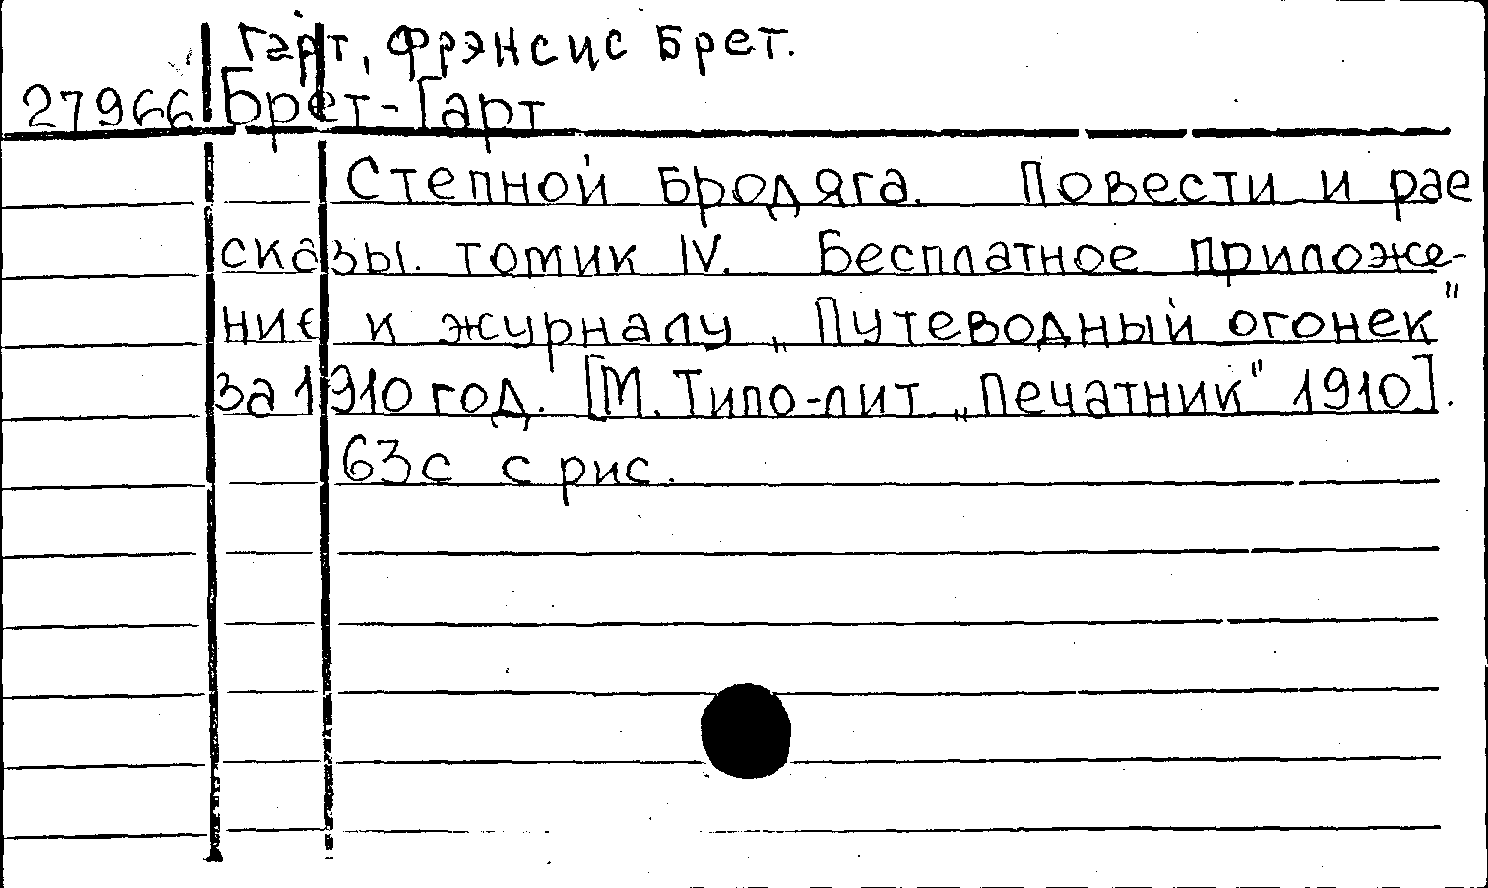 Гарт, Фрэнсис Брет.
27966 Брет-Гарт
Степной бродяга. Повести и рас
сказы. томик IV. Бесплатное приложе-
ние к журналу „Путеводный огонек"
за 1910 год. [М. Типо-лит „Печатник" 1910].
63с с рис.